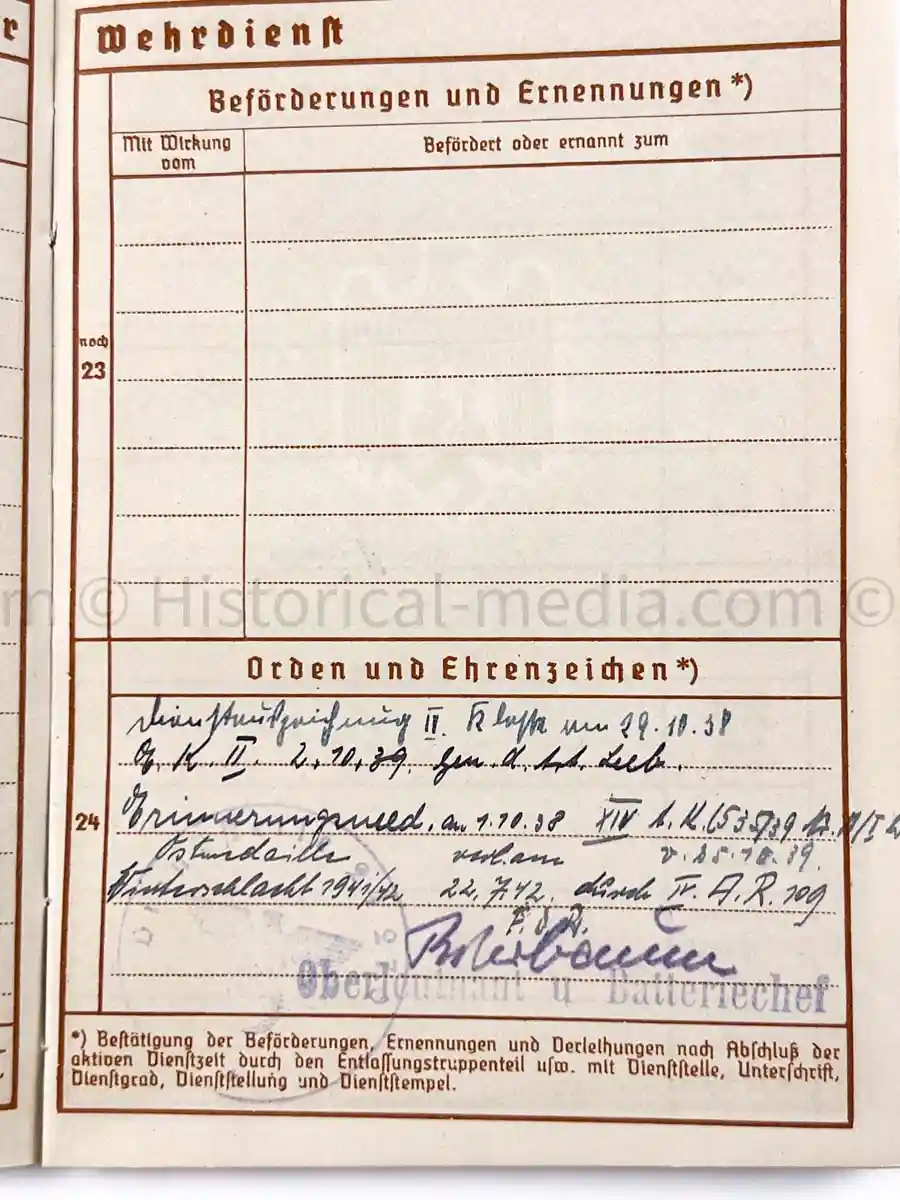 r
Wehrdienst
Beförderungen und Ernennungen *)
Mit Wirkung vom
Befördert oder ernannt zum
noch
23
m © Historical-media.com ©
Orden und Ehrenzeichen *)
24
Dienstauszeichnung II. Klasse am 29.10.38
E. K. II. 2.10.39. Gen. d. Art. Leeb.
Erinnerungsmed. am 1.10.38 XIV A.K. (535)39
Ostmedaille verl. am v. 25.10.39.
Winterschlacht 1941/42 22.7.42. durch IV. A.R. 109
F.d.R.
Oberleutnant u Batteriechef
*) Bestätigung der Beförderungen, Ernennungen und Verleihungen nach Abschluß der
aktiven Dienstzeit durch den Entlassungstruppenteil usw. mit Dienststelle, Unterschrift,
Dienstgrad, Dienststellung und Dienststempel.